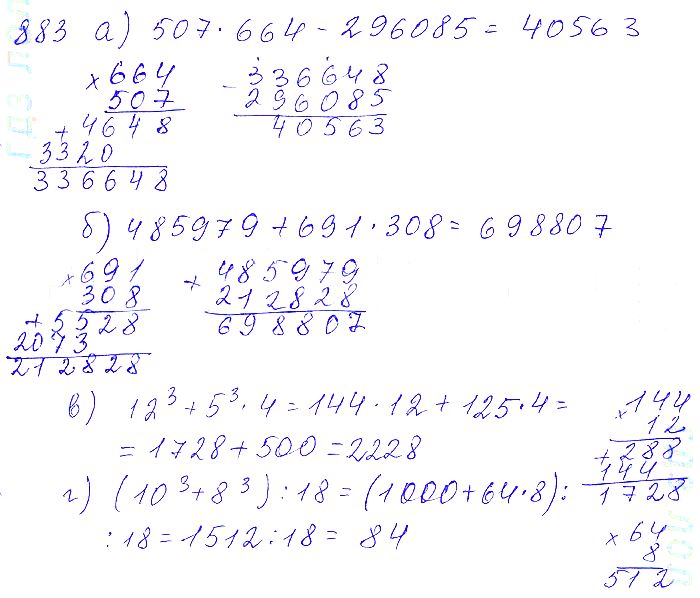 883 а) 507 · 664 - 296085 = 40563
× 664
507
+ 4648
3320
336648
- 336648
296085
40563
б) 485979 + 691 · 308 = 698807
× 691
308
+ 5528
2073
212828
+ 485979
212828
698807
в) 12³ + 5³ · 4 = 144 · 12 + 125 · 4 =
= 1728 + 500 = 2228
× 144
12
+ 288
144
1728
г) (10³ + 8³) : 18 = (1000 + 64 · 8) :
: 18 = 1512 : 18 = 84
× 64
8
512